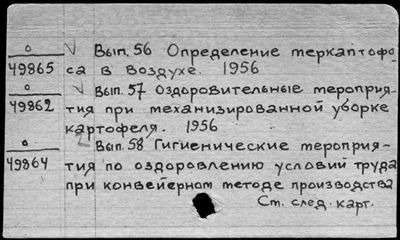 о Вып. 56 Определение теркаптофо-
49865 са в воздухе. 1956
о Вып. 57 Оздоровительные мероприя-
49862 тия при механизированной уборке
картофеля. 1956
о Вып. 58 Гигиенические мероприя-
49864 тия по оздоровлению условий труда
при конвейерном методе производства
Ст. след. карт.